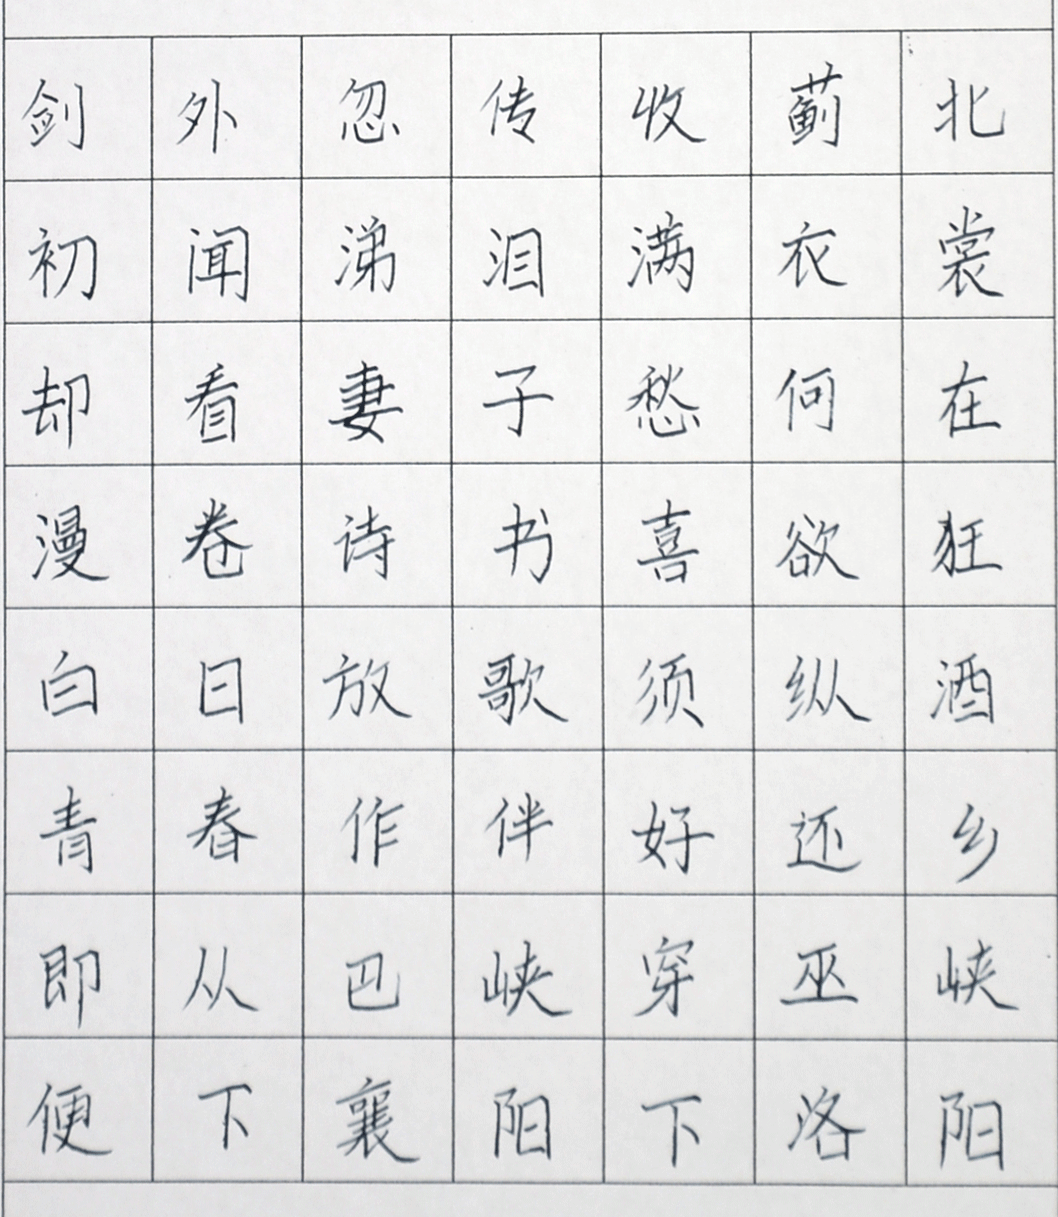 剑外忽传收蓟北
初闻涕泪满衣裳
却看妻子愁何在
漫卷诗书喜欲狂
白日放歌须纵酒
青春作伴好还乡
即从巴峡穿巫峡
便下襄阳下洛阳